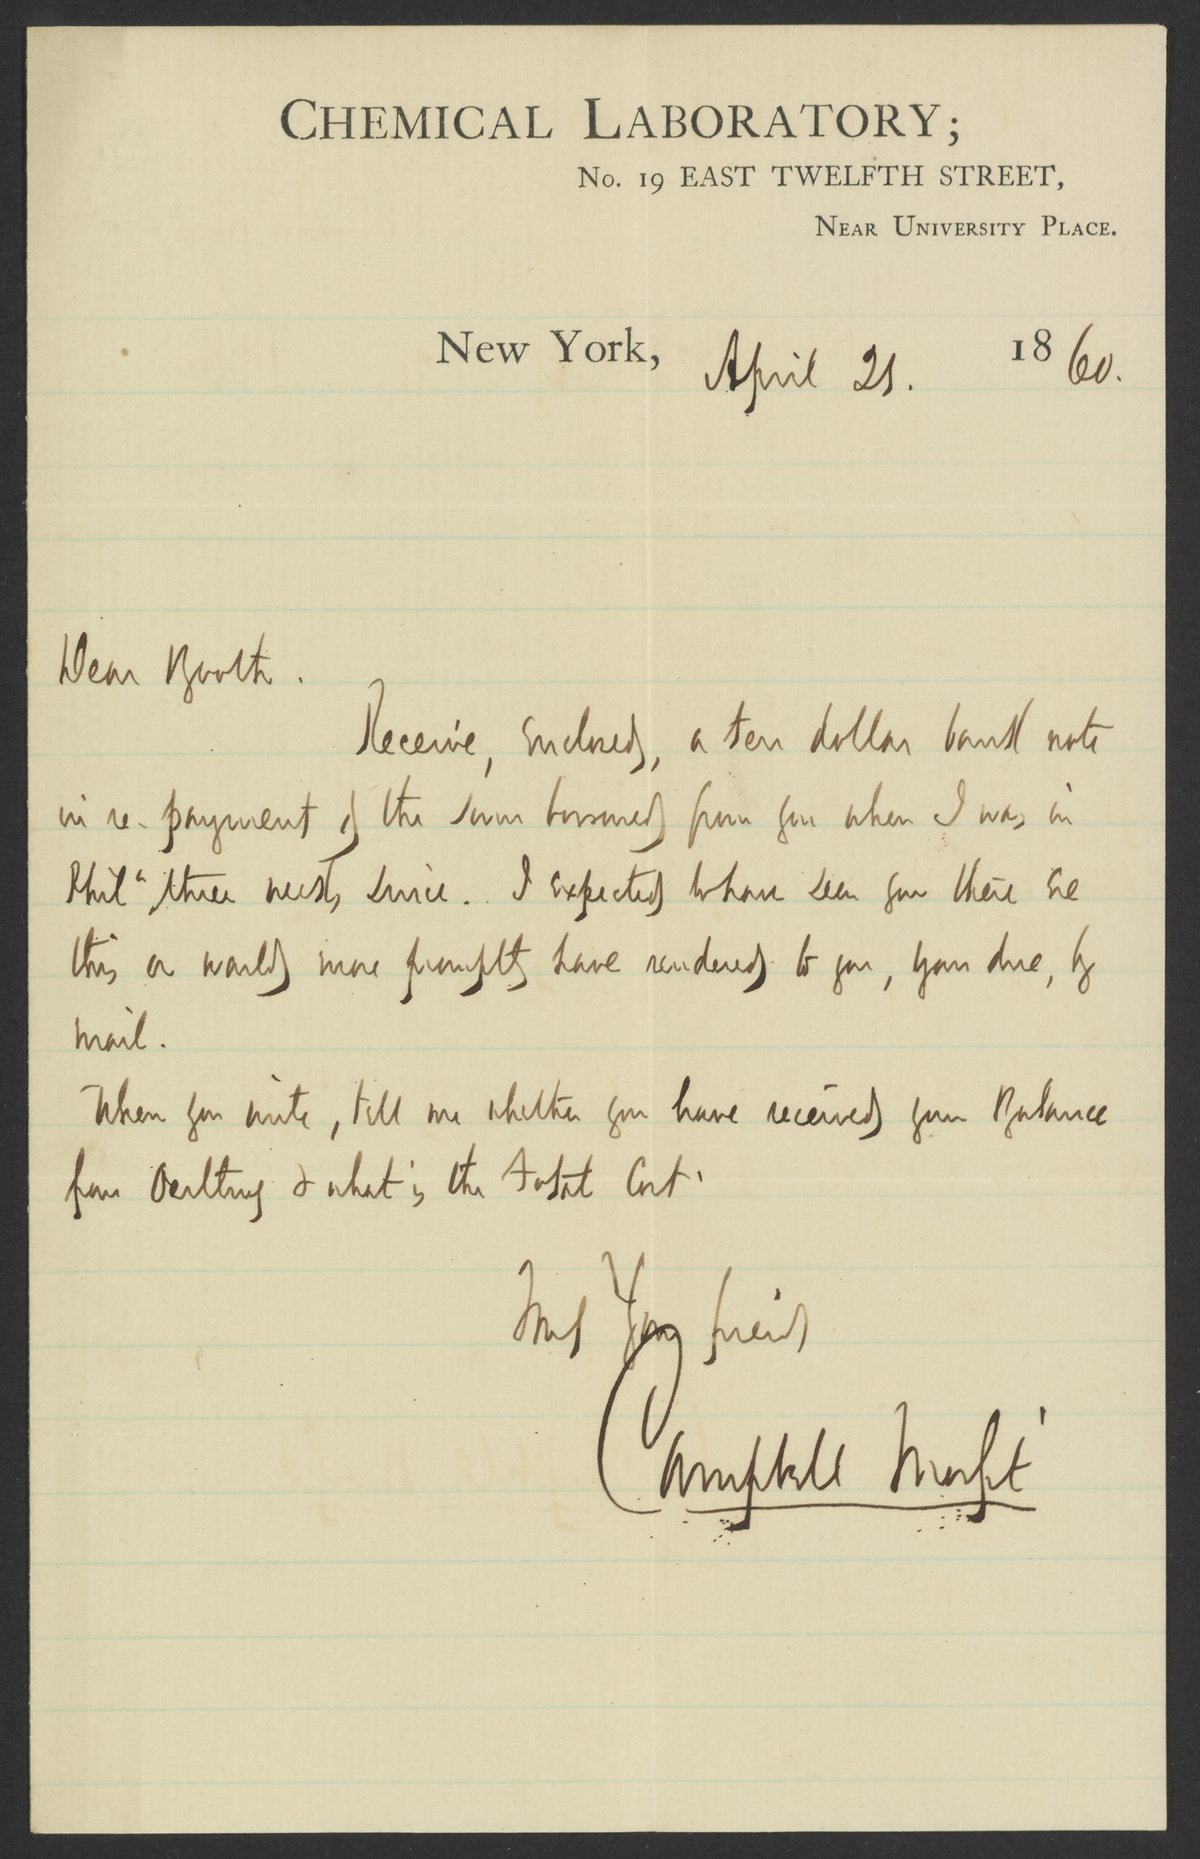 CHEMICAL LABORATORY;
No. 19 EAST TWELFTH STREET,
NEAR UNIVERSITY PLACE.
New York, April 21. 1860.
Dear Booth.
Receive, enclosed, a ten dollar bank note
in re-payment of the sum borrowed from you when I was in
Phil^a, three weeks since. I expected to have seen you there ere
this, or would more promptly have rendered to you, your due, by
mail.
When you write, tell me whether you have received your Balance
from & what is the total Cost.
Most Your friend
Campbell Morfit